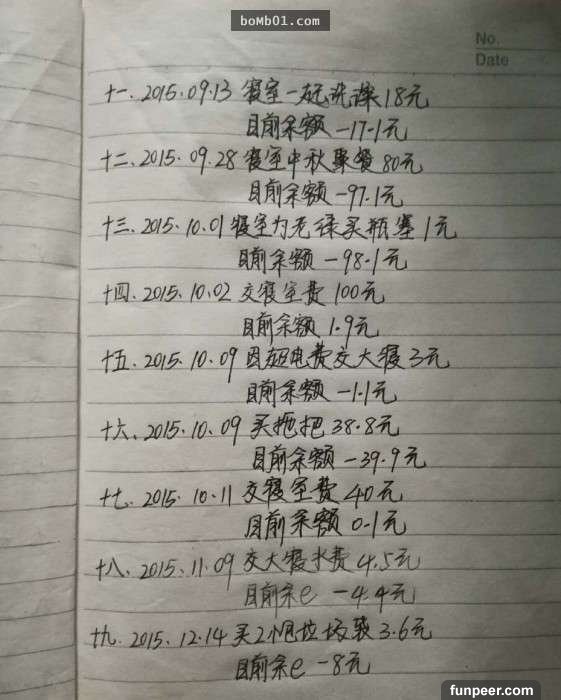 boMb01.com
No.
Date
十一、2015.09.13 寝室一起洗澡18元
目前余额 -17.1元
十二、2015.09.28 寝室中秋聚餐80元
目前余额 -97.1元
十三、2015.10.01 寝室为无绿买瓶塞1元
目前余额 -98.1元
十四、2015.10.02 交寝室费100元
目前余额 1.9元
十五、2015.10.09 因超电费交大寝3元
目前余额 -1.1元
十六、2015.10.09 买拖把38.8元
目前余额 -39.9元
十七、2015.10.11 交寝室费40元
目前余额 0.1元
十八、2015.11.09 交大寝水费4.5元
目前余e -4.4元
十九、2015.12.14 买2个包垃圾袋3.6元
目前余e -8元
funpeer.com